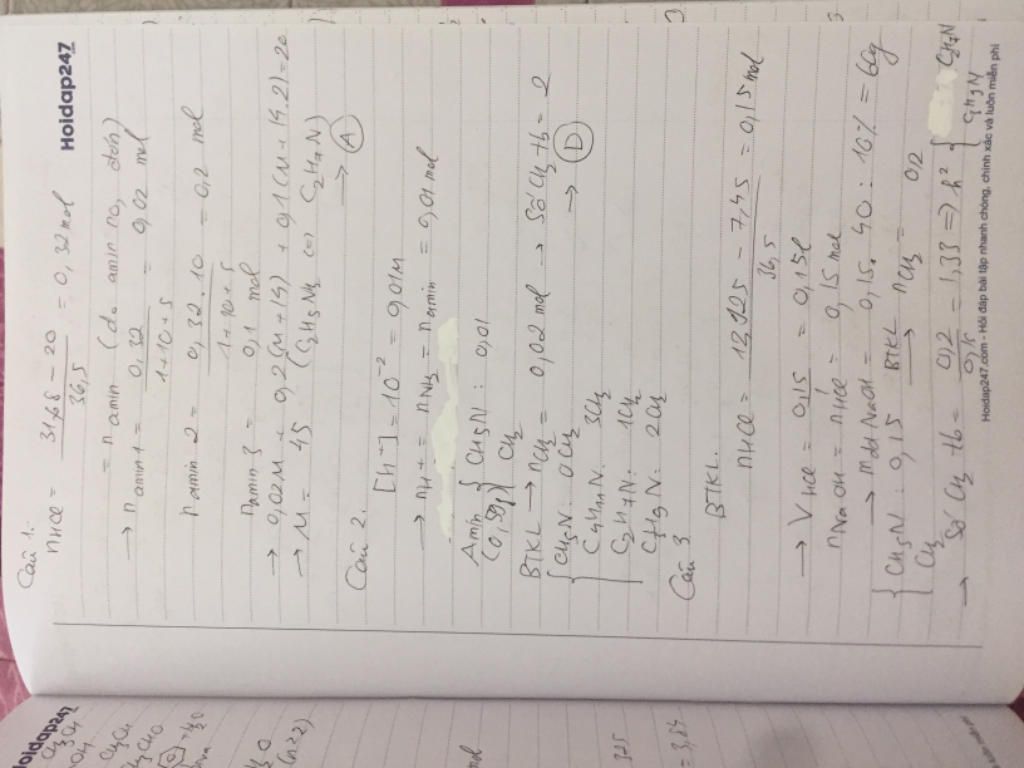 Hoidap247
Câu 1:
nHCl = (31,68 - 20)/36,5 = 0,32 mol
= n amin (do amin no, đơn)
→ n amin 1 = 0,32/(1+10+5) = 0,02 mol
n amin 2 = (0,32.10)/(1+10+5) = 0,2 mol
n amin 3 = 0,1 mol
→ 0,02M + 0,2(M+14) + 0,1(M+14.2) = 20
→ M = 45 (C2H5NH2 ⇔ C2H7N)
→ A
Câu 2.
[H+] = 10^-2 = 0,01M
→ nH+ = nNH3 = n amin = 0,01 mol
Amin { CH5N : 0,01
(0,59g) CH2
BTKL → nCH2 = 0,02 mol → Số CH2 tb = 2
{ CH5N: 0CH2 → D
C4H11N: 3CH2
{ C2H7N: 1CH2
C3H9N: 2CH2
Câu 3.
BTKL.
nHCl = (12,925 - 7,45)/36,5 = 0,15 mol
→ VHCl = 0,15 = 0,15l
nNaOH = nHCl = 0,15 mol
→ mdd NaOH = 0,15.40:10% = 60g
{ CH5N : 0,15 BTKL → nCH2 = 0,2
CH2
→ Số CH2 tb = 0,2/0,15 = 1,33 => h² { C2H7N
C3H9N
Hoidap247.com - Hỏi đáp bài tập nhanh chóng, chính xác và luôn miễn phí
Hoidap247
CH3CH
CH3CH
CH3CHO
+ H2O
(n=2)
mol
375
= 3,84